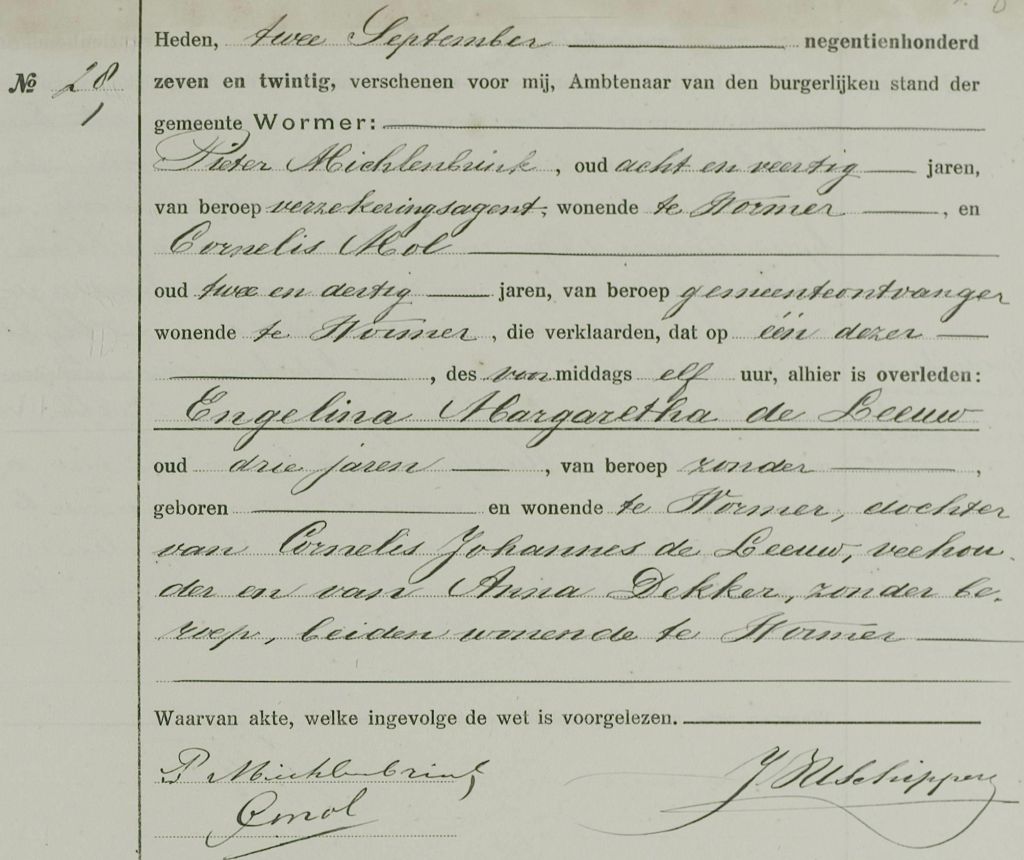 Heden, twee September negentienhonderd
№ 28 zeven en twintig, verschenen voor mij, Ambtenaar van den burgerlijken stand der
gemeente Wormer:
Pieter Michlenbrink, oud acht en veertig jaren,
van beroep verzekeringsagent, wonende te Wormer, en
Cornelis Mol
oud twee en dertig jaren, van beroep gemeenteontvanger
wonende te Wormer, die verklaarden, dat op één dezer
, des voormiddags elf uur, alhier is overleden:
Engelina Margaretha de Leeuw
oud drie jaren, van beroep zonder,
geboren en wonende te Wormer, dochter
van Cornelis Johannes de Leeuw, veehou-
der en van Anna Dekker, zonder be-
roep, beiden wonende te Wormer
Waarvan akte, welke ingevolge de wet is voorgelezen.
P Michlenbrink
CMol